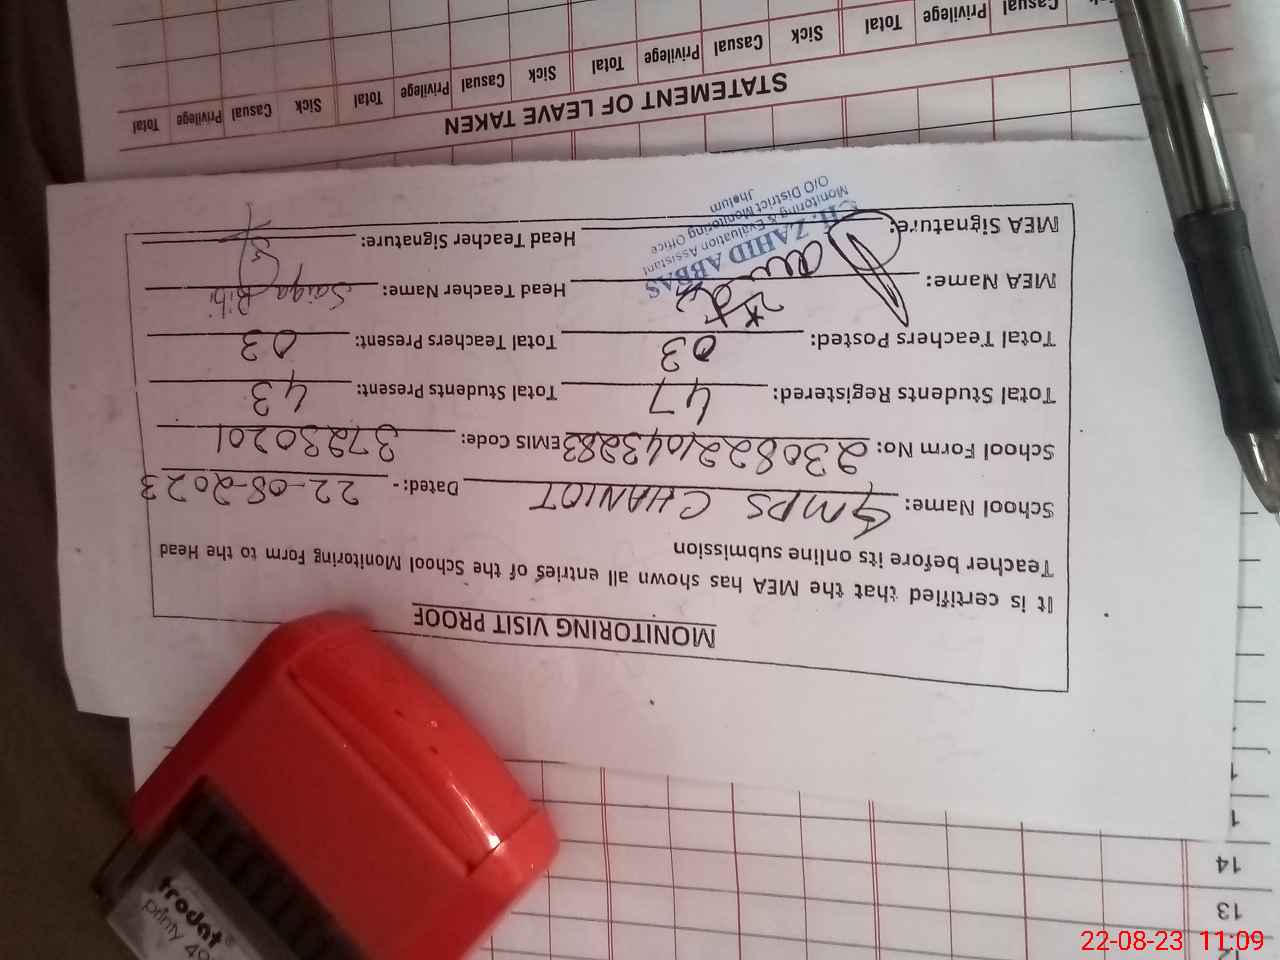 MONITORING VISIT PROOF
It is certified that the MEA has shown all entries of the School Monitoring Form to the Head
Teacher before its online submission
School Name: GMPS CHANIOT Dated:- 22-08-2023
School Form No: 230822104 3283 EMIS Code: 37230201
Total Students Registered: 47 Total Students Present: 43
Total Teachers Posted: 03 Total Teachers Present: 03
MEA Name: Head Teacher Name: Saiqa Bibi
MEA Signature: Head Teacher Signature:
CH. ZAHID ABBAS
Monitoring & Evaluation Assistant
O/O District Monitoring Office
Jhelum
STATEMENT OF LEAVE TAKEN
Total Privilege Casual Sick Total Privilege Casual Sick Total Privilege Casual Sick Total Privilege Casual
12
13
14
1
1
trodat®
printy 49
22-08-23 11:09